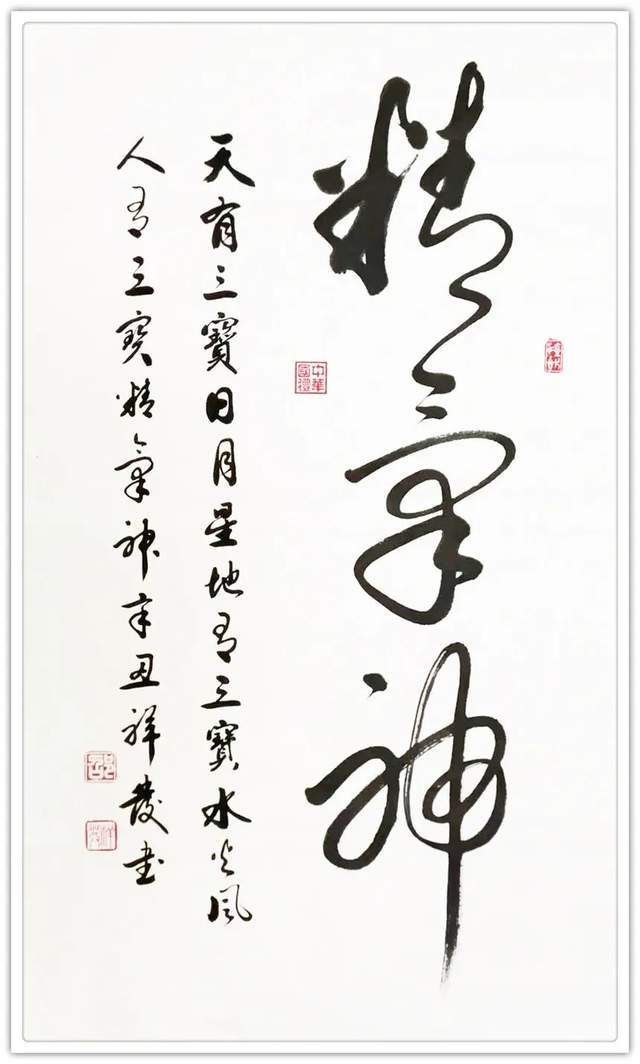 精氣神
中華國禮
天有三寶日月星地有三寶水火風
人有三寶精氣神辛丑祥發書